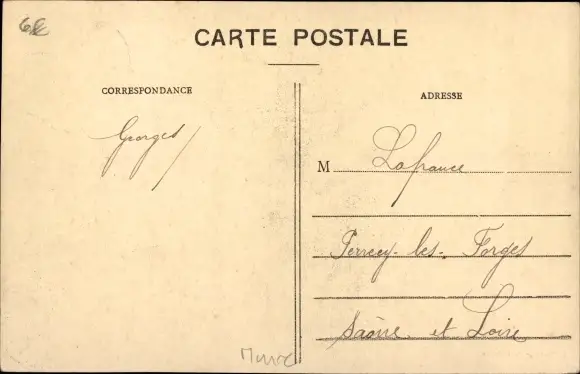 CARTE POSTALE
CORRESPONDANCE
Georges
ADRESSE
M Lafrance
Perrecy-les-Forges
Saône et Loire
Maroc